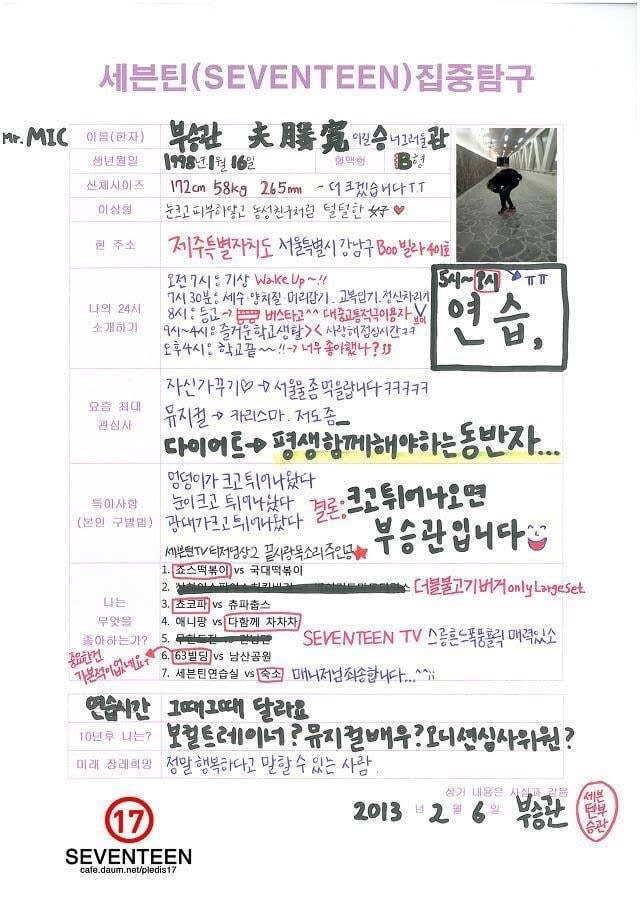 세븐틴(SEVENTEEN)집중탐구
Mr. MIC
이름(한자) 부승관 夫勝寛 이길 승 너그러울 관
생년월일 1998년 1월 16일 혈액형 B형
신체사이즈 172cm 58kg 265mm - 더 크겠습니다 T.T
이상형 눈크고 피부하얗고 동성친구처럼 털털한 女子 ♥
현 주소 제주특별자치도 서울특별시 강남구 Boo빌라 401호
나의 24시
소개하기
오전 7시 : 기상 Wake Up~!!
7시 30분 : 세수·양치질·머리감기·교복입기·정신차리기
8시 : 등교 → 버스타고^^ 대중교통적극이용자
9시~4시 : 즐거운 학교생활 >< 사랑해 점심시간ㅋㅋ
오후 4시 : 학교끝 ~~!! → 너무 좋아했나?
5시~9시 → ㅠㅠ
연습,
요즘 최대
관심사
자신가꾸기♡ → 서울물좀 먹을랍니다 ㅋㅋㅋㅋㅋ
뮤지컬 → 카리스마. 저도좀
다이어트 → 평생함께해야하는동반자...
특이사항
(본인 구별법)
엉덩이가 크고 튀어나왔다
눈이크고 튀어나왔다
광대가크고 튀어나왔다
결론: 크고튀어나오면
부승관입니다
세븐틴TV티저영상2 끝사랑목소리주인공★
나는
무엇을
좋아하는가?
1. 죠스떡볶이 vs 국대떡볶이
2. 더블불고기버거 only Large set
3. 쵸코파 vs 츄파춥스
4. 애니팡 vs 다함께 차차차
5.
SEVENTEEN TV 스릉흔드 폭풍홀릭 매력있소
6. 63빌딩 vs 남산공원
7. 세븐틴연습실 vs 숙소 매니저님죄송합니다...^^;;
중요한건
가본적이없네요
연습시간 그때그때 달라요
10년후 나는? 보컬트레이너? 뮤지컬배우? 오디션심사위원?
미래 장래희망 정말 행복하다고 말할 수 있는 사람
상기 내용은 사실과 같음
2013 년 2 월 6 일 부승관
세븐
틴부
승관
17
SEVENTEEN
cafe.daum.net/pledis17